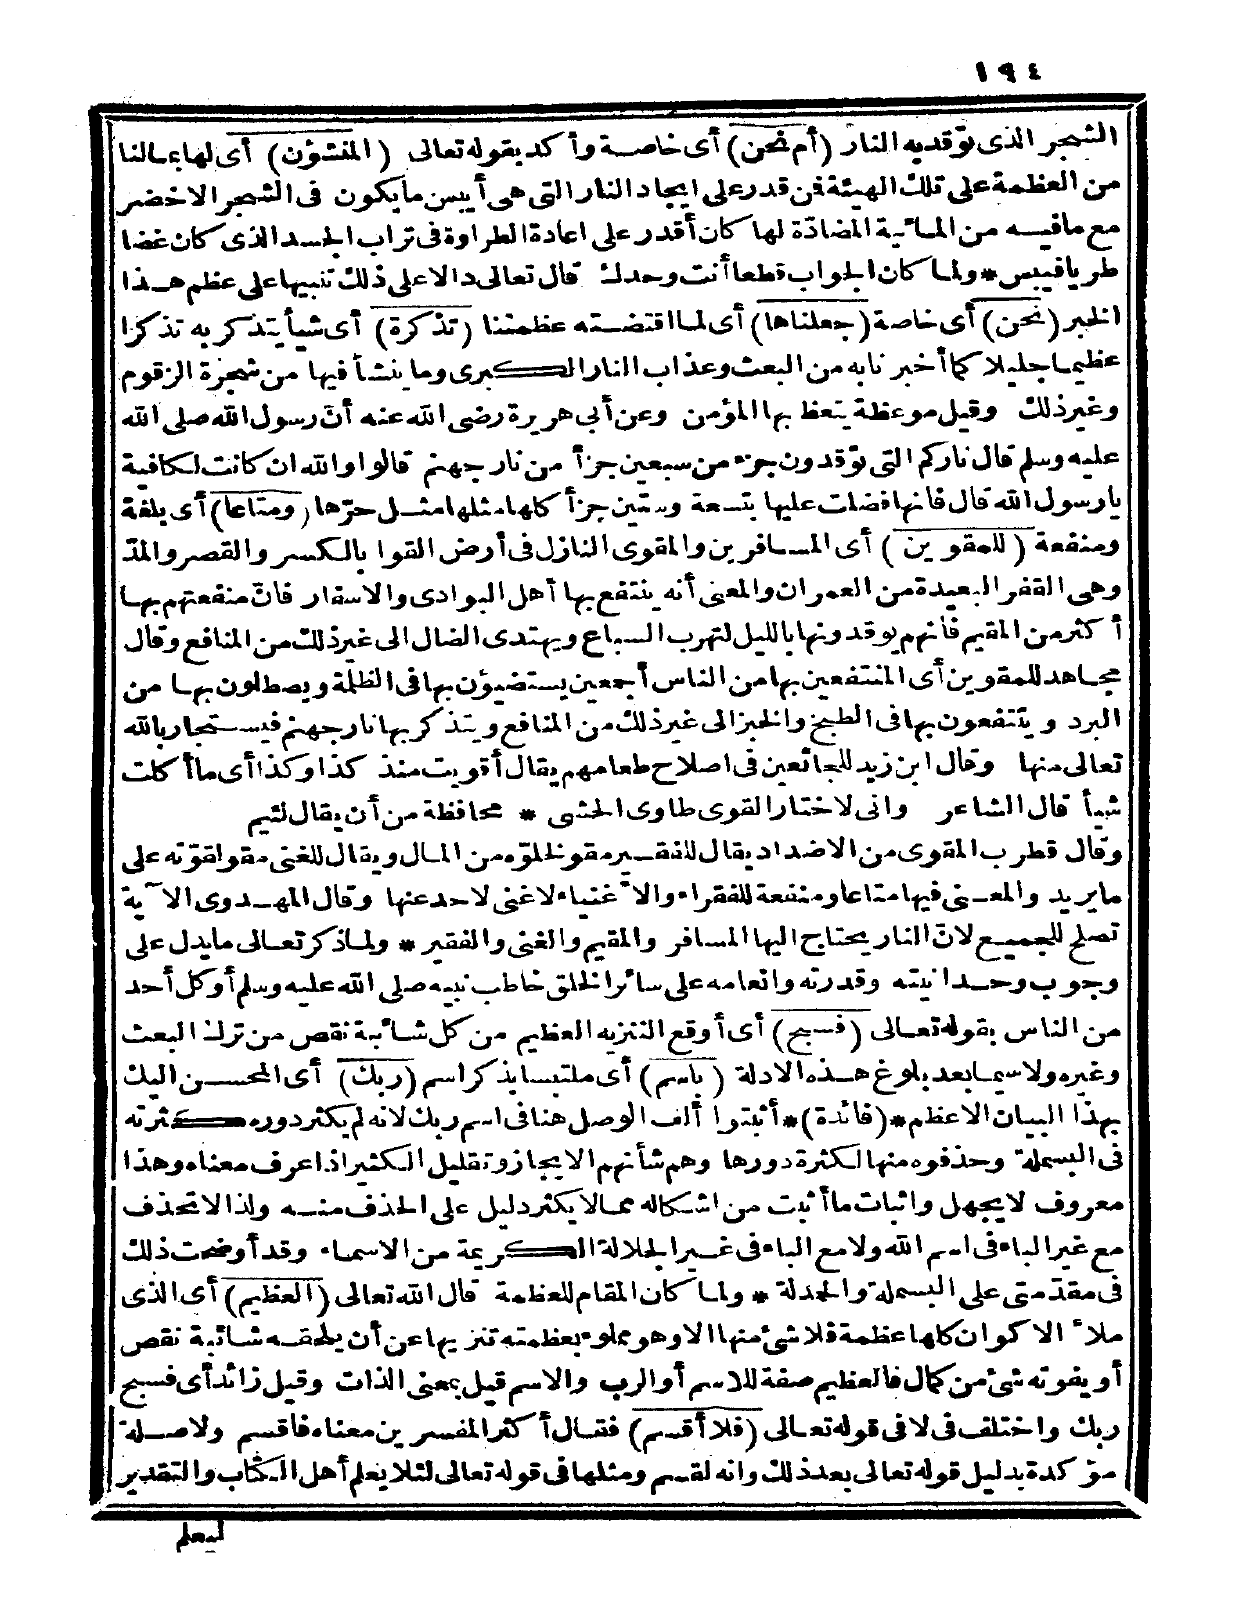 ١٩٤
الشجر الذى توقد به النار (أم نحن) أى خاصة وأكد بقوله تعالى (المنشؤن) أى لها بمالنا
من العظمة على تلك الهيئة فن قدر على ايجاد النار التى هى أيبس ما يكون فى الشجر الاخضر
مع ما فيه من المائية المضادّة لها كان أقدر على اعادة الطراوة فى تراب الجسد الذى كان غضا
طريا فيبس * ولما كان الجواب قطعا أنت وحدك قال تعالى دالا على ذلك تنبيها على عظم هذا
الخبر (نحن) أى خاصة (جعلناها) أى لما اقتضته عظمتنا (تذكرة) أى شيأ يتذكر به تذكرا
عظيما جليلا كما أخبرنا به من البعث وعذاب النار الكبرى وما ينشأ فيها من شجرة الزقوم
وغير ذلك وقيل موعظة يتعظ بها المؤمن وعن أبى هريرة رضى الله عنه أنّ رسول الله صلى الله
عليه وسلم قال ناركم التى توقدون جزء من سبعين جزأ من نار جهنم قالوا والله ان كانت لكافية
يا رسول الله قال فانها فضلت عليها بتسعة وستين جزأ كلها مثلها مثل حرّها (ومتاعا) أى بلغة
ومنفعة (للمقوين) أى المسافرين والمقوى النازل فى أرض القوا بالكسر والقصر والمدّ
وهى القفر البعيدة من العمران والمعنى أنه ينتفع بها أهل البوادى والاسفار فانّ منفعتهم بها
أكثر من المقيم فانهم يوقدونها بالليل لتهرب السباع ويهتدى الضال الى غير ذلك من المنافع وقال
مجاهد للمقوين أى المنتفعين بها من الناس أجمعين يستضيؤن بها فى الظلمة ويصطلون بها من
البرد وينتفعون بها فى الطبخ والخبز الى غير ذلك من المنافع ويتذكر بها نار جهنم فيستجار بالله
تعالى منها وقال ابن زيد للجائعين فى اصلاح طعامهم يقال أقويت منذ كذا وكذا أى ما أكلت
شيأ قال الشاعر وانى لاختار القوى طاوى الحشى * محافظة من أن يقال لئيم
وقال قطرب المقوى من الاضداد يقال للفقير مقو لخلوّه من المال ويقال للغنى مقو لقوّته على
ما يريد والمعنى فيها متاعا ومنفعة للفقراء والاغنياء لا غنى لاحد عنها وقال المهدوى الآية
تصلح للجميع لانّ النار يحتاج اليها المسافر والمقيم والغنى والفقير * ولما ذكر تعالى ما يدل على
وجوب وحدانيته وقدرته وانعامه على سائر الخلق خاطب نبيه صلى الله عليه وسلم أو كل أحد
من الناس بقوله تعالى (فسبح) أى أوقع التنزيه العظيم من كل شائبة نقص من ترك البعث
وغيره ولا سيما بعد بلوغ هذه الادلة (باسم) أى ملتبسا بذكر اسم (ربك) أى المحسن اليك
بهذا البيان الاعظم *(فائدة)* أثبتوا ألف الوصل هنا فى اسم ربك لانه لم يكثر دوره كثرته
فى البسملة وحذفوه منها لكثرة دورها وهم شأنهم الايجاز وتقليل الكثير اذا عرف معناه وهذا
معروف لا يجهل واثبات ما أثبت من اشكاله مما لا يكثر دليل على الحذف منه ولذا لا تحذف
مع غير الباء فى اسم الله ولا مع الباء فى غير الجلالة الكريمة من الاسماء وقد أوضحت ذلك
فى مقدّمتى على البسملة والحمدلة * ولما كان المقام للعظمة قال الله تعالى (العظيم) أى الذى
ملأ الاكوان كلها عظمة فلا شئ منها الا وهو مملوء بعظمته تنزيها عن أن يلحقه شائبة نقص
أو يفوته شئ من كمال فالعظيم صفة للاسم أو الرب والاسم قيل بمعنى الذات وقيل زائد أى فسبح
ربك واختلف فى لا فى قوله تعالى (فلا أقسم) فقال أكثر المفسرين معناه فاقسم ولا صلة
مؤكدة بدليل قوله تعالى بعد ذلك وانه لقسم ومثلها فى قوله تعالى لئلا يعلم أهل الكتاب والتقدير
ليعلم